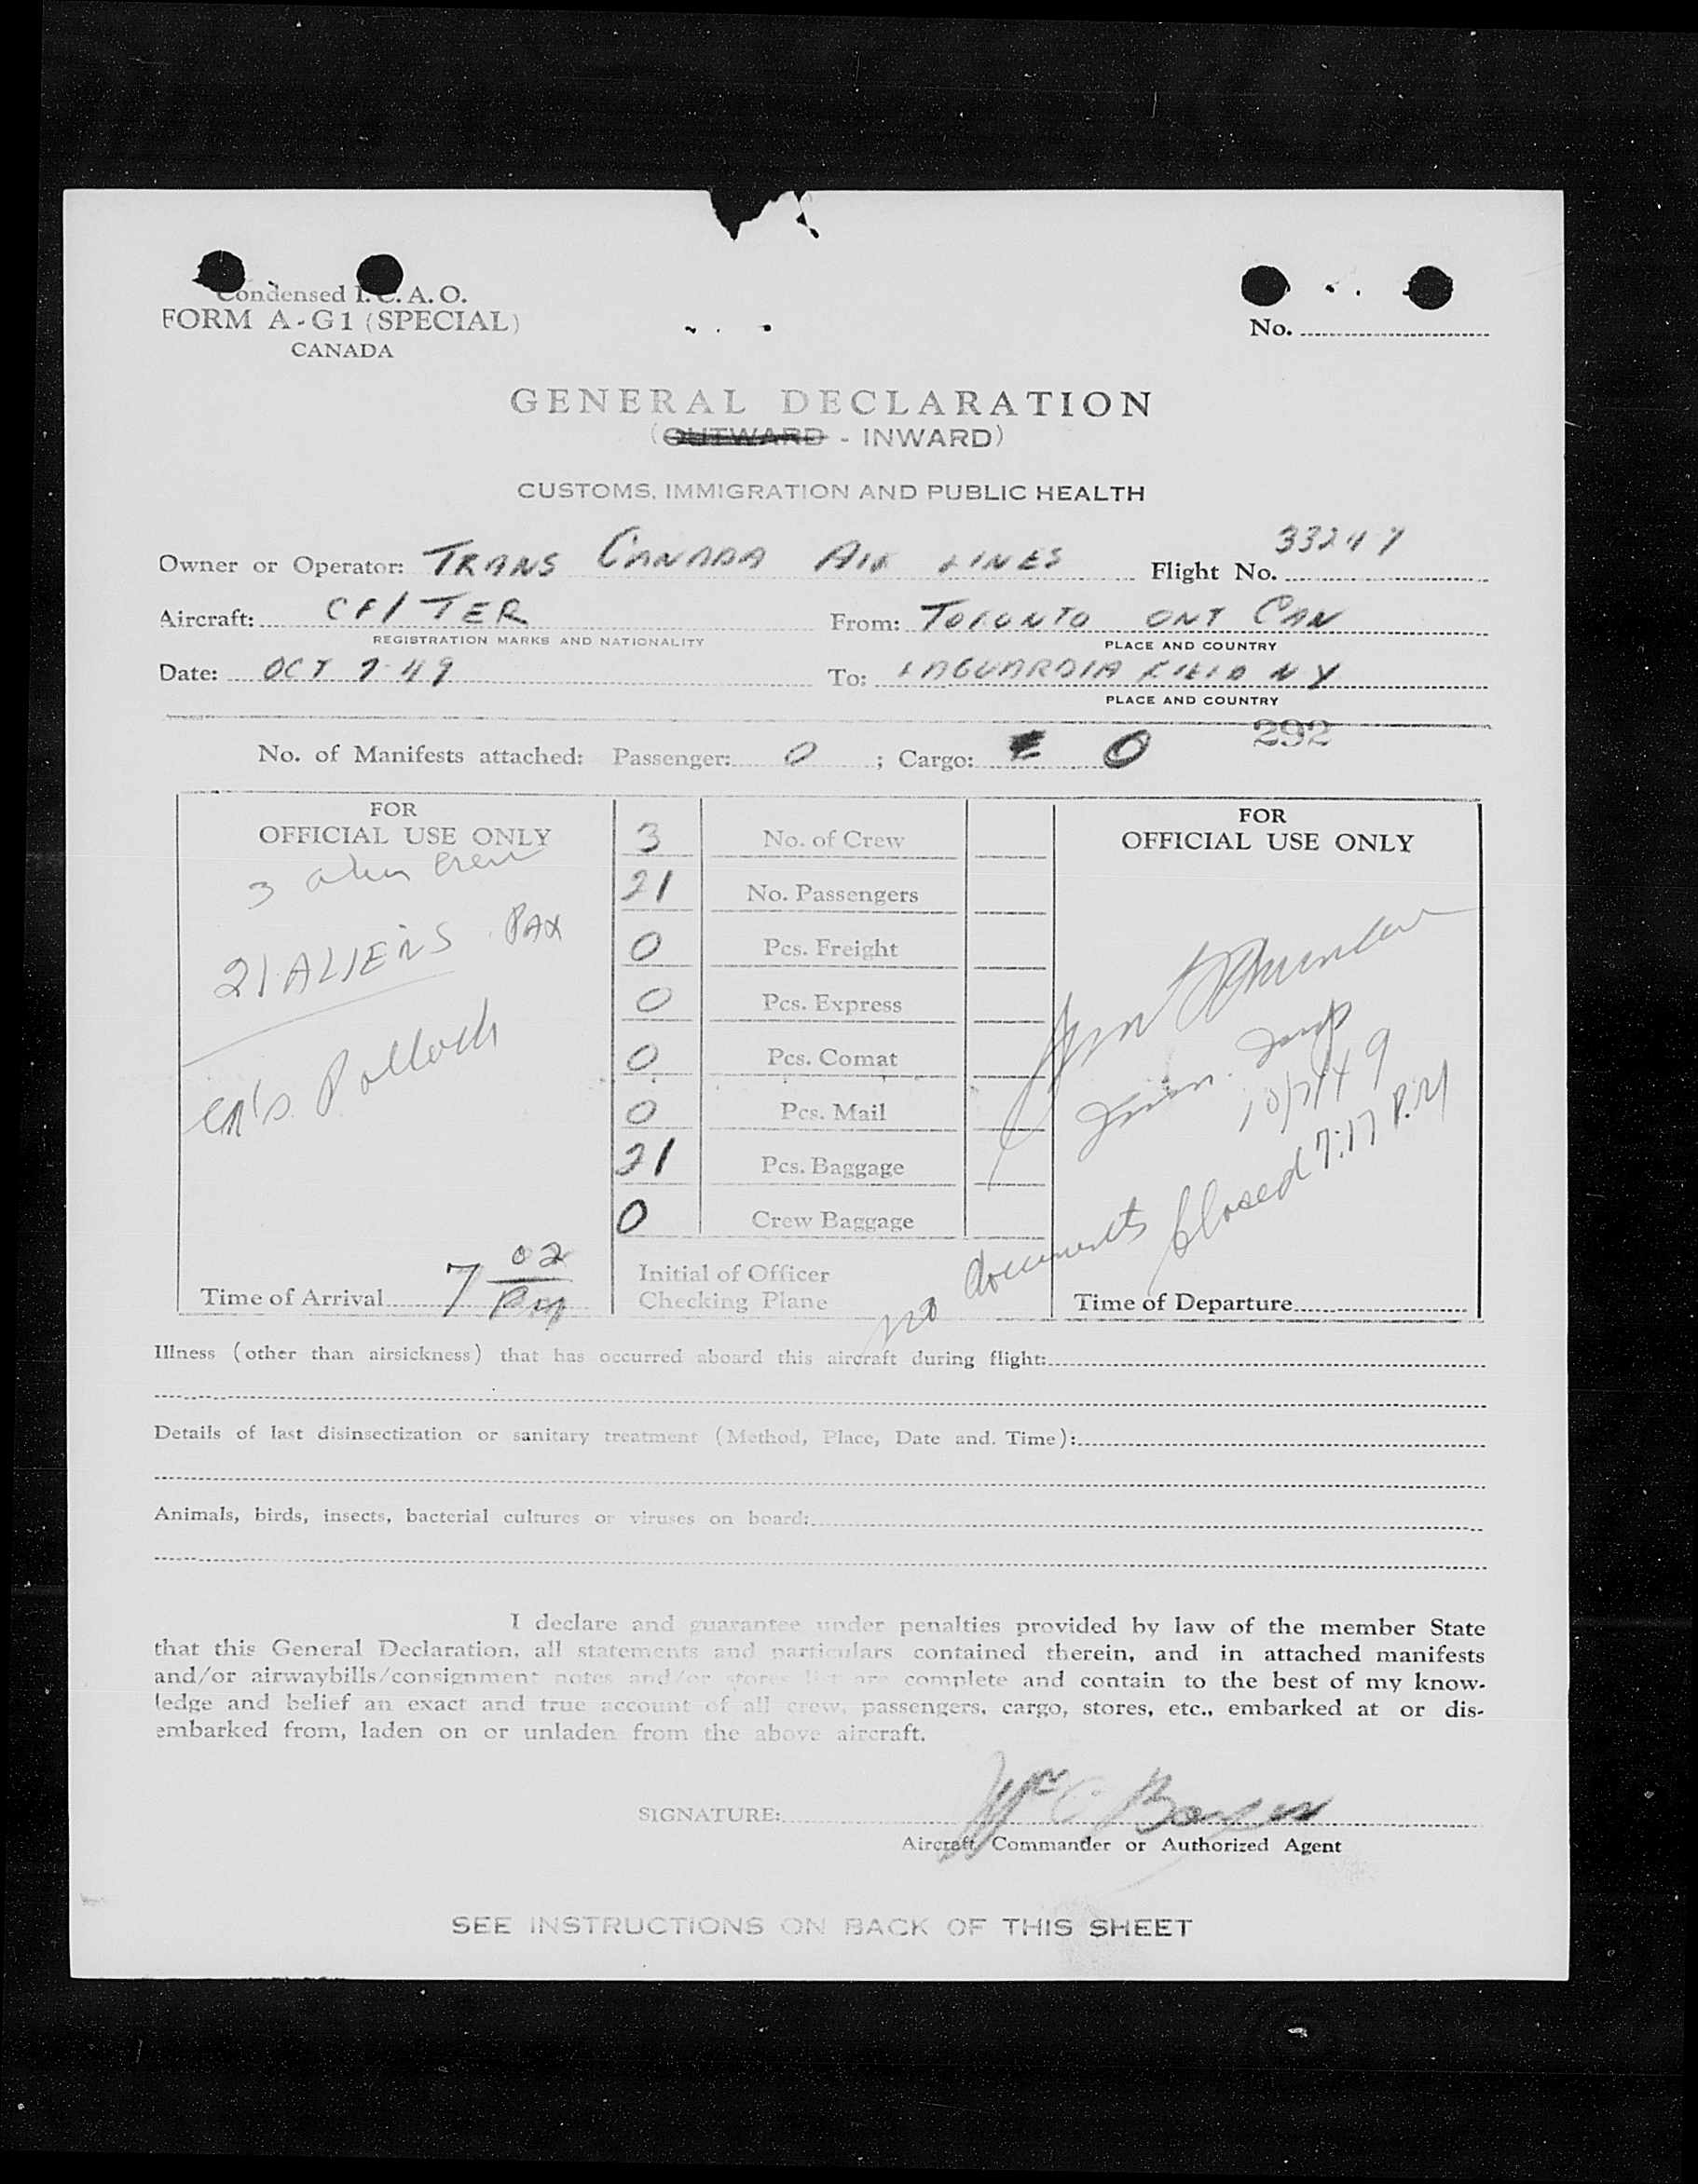 Condensed I.C.A.O.
FORM A-G1 (SPECIAL)
CANADA
No.
GENERAL DECLARATION
(OUTWARD - INWARD)
CUSTOMS, IMMIGRATION AND PUBLIC HEALTH
Owner or Operator: TRANS CANADA AIR LINES Flight No. 33247
Aircraft: CF/TER From: TORONTO ONT CAN
REGISTRATION MARKS AND NATIONALITY PLACE AND COUNTRY
Date: OCT 7-49 To: LAGUARDIA FIELD NY
PLACE AND COUNTRY
292
No. of Manifests attached: Passenger: 0 ; Cargo: 0
FOR
OFFICIAL USE ONLY
3 alien crew
21 ALIENS PAX
Pollock
Time of Arrival 7 02 PM
3 No. of Crew
21 No. Passengers
0 Pcs. Freight
0 Pcs. Express
0 Pcs. Comat
0 Pcs. Mail
21 Pcs. Baggage
0 Crew Baggage
Initial of Officer
Checking Plane
FOR
OFFICIAL USE ONLY
Imm. Insp
10/7/49
no documents closed 7:17 P.M
Time of Departure
Illness (other than airsickness) that has occurred aboard this aircraft during flight:
Details of last disinsectization or sanitary treatment (Method, Place, Date and. Time):
Animals, birds, insects, bacterial cultures or viruses on board:
I declare and guarantee under penalties provided by law of the member State
that this General Declaration, all statements and particulars contained therein, and in attached manifests
and/or airwaybills/consignment notes and/or stores list are complete and contain to the best of my know-
ledge and belief an exact and true account of all crew, passengers, cargo, stores, etc., embarked at or dis-
embarked from, laden on or unladen from the above aircraft.
SIGNATURE: Wm C
Aircraft Commander or Authorized Agent
SEE INSTRUCTIONS ON BACK OF THIS SHEET